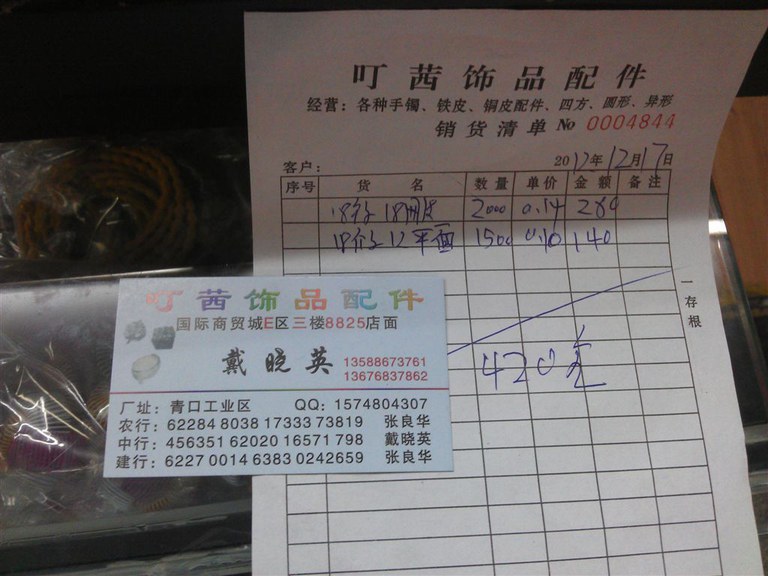 叮茜饰品配件
经营：各种手镯、铁皮、铜皮配件、四方、圆形、异形
销货清单 No 0004844
客户：
2012年12月17日
序号 货名 数量 单价 金额 备注
2000 0.14 280
平面 1500 0.10 140
420
一存根
叮茜饰品配件
国际商贸城E区三楼8825店面
戴晓英 13588673761
13676837862
厂址：青口工业区 QQ：1574804307
农行：62284 8038 17333 73819 张良华
中行：456351 62020 16571 798 戴晓英
建行：6227 0014 6383 0242659 张良华